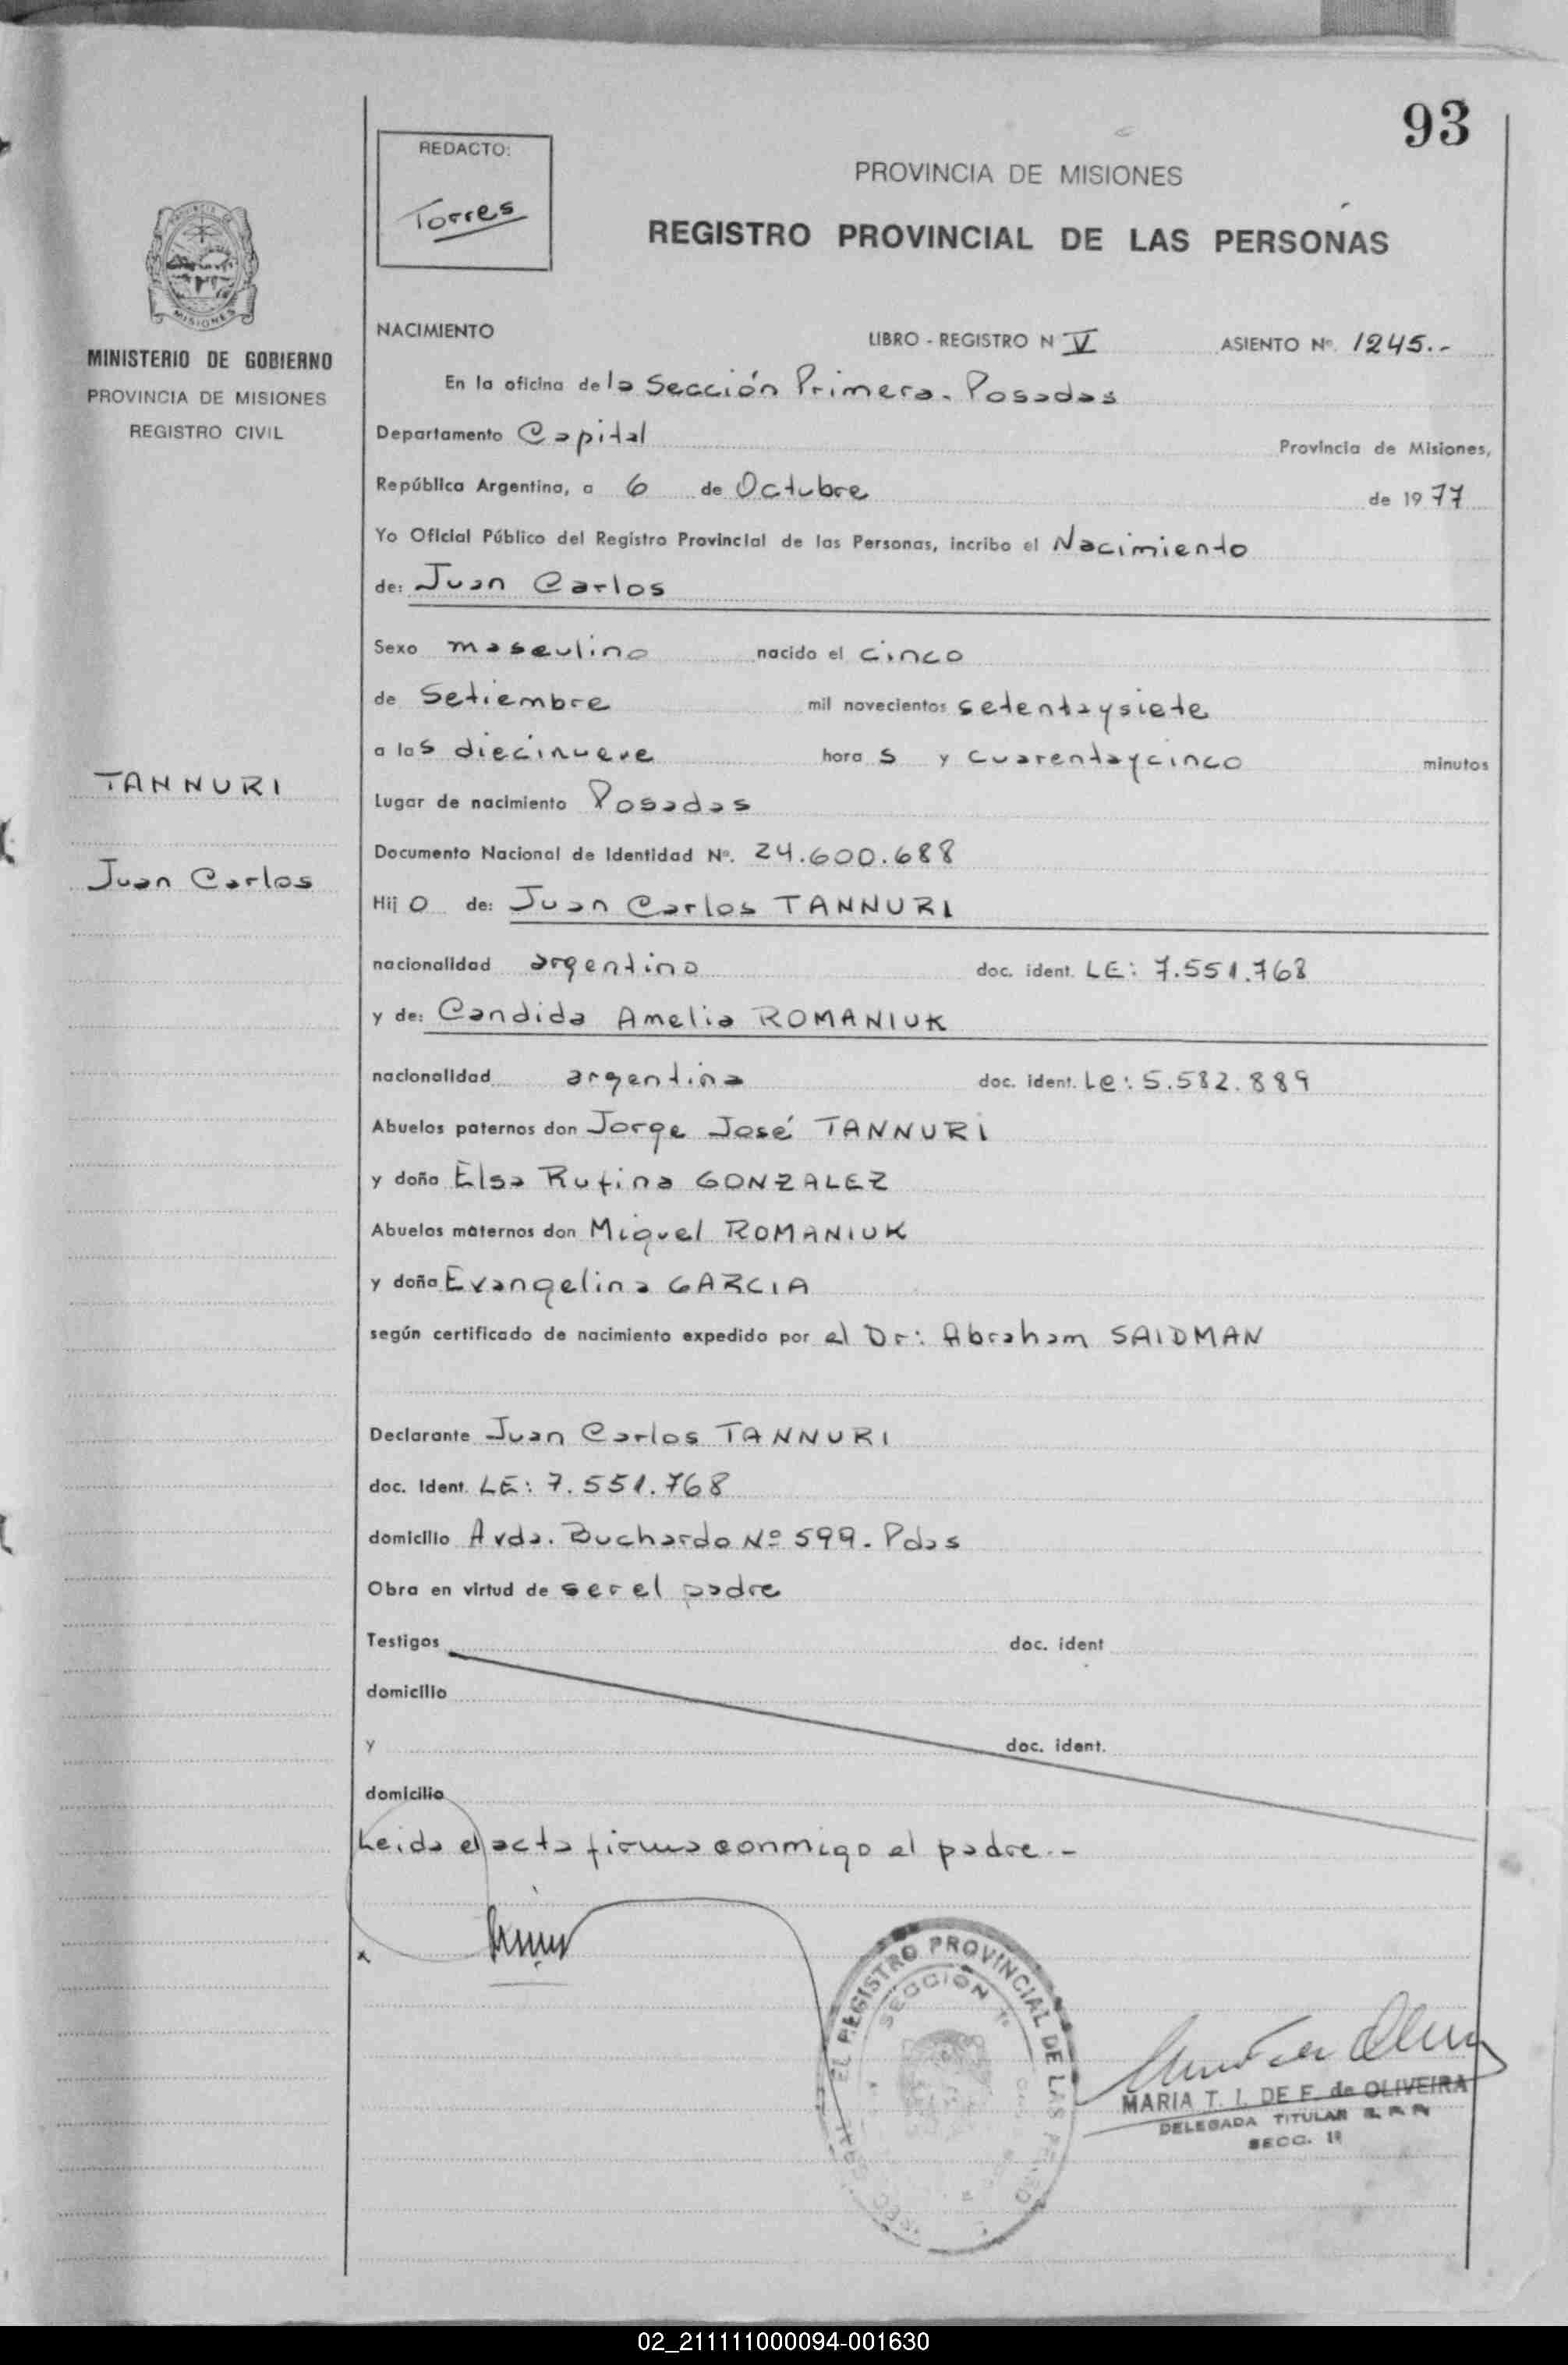 93
REDACTO:
Torres
PROVINCIA DE MISIONES
REGISTRO PROVINCIAL DE LAS PERSONAS
MISIONES
MINISTERIO DE GOBIERNO
PROVINCIA DE MISIONES
REGISTRO CIVIL
TANNURI
Juan Carlos
NACIMIENTO LIBRO - REGISTRO N V ASIENTO Nº. 1245.-
En la oficina de la Sección Primera. Posadas
Departamento Capital Provincia de Misiones,
República Argentina, a 6 de Octubre de 1977
Yo Oficial Público del Registro Provincial de las Personas, incribo el Nacimiento
de: Juan Carlos
Sexo masculino nacido el cinco
de Setiembre mil novecientos setentaysiete
a las diecinueve horas y cuarentaycinco minutos
Lugar de nacimiento Posadas
Documento Nacional de Identidad Nº. 24.600.688
Hijo de: Juan Carlos TANNURI
nacionalidad argentino doc. ident. LE: 7.551.768
y de: Candida Amelia ROMANIUK
nacionalidad argentina doc. ident. Le: 5.582.889
Abuelos paternos don Jorge José TANNURI
y doña Elsa Rufina GONZALEZ
Abuelos maternos don Miguel ROMANIUK
y doña Evangelina GARCIA
según certificado de nacimiento expedido por el Dr: Abraham SAIDMAN
Declarante Juan Carlos TANNURI
doc. Ident. LE: 7.551.768
domicilio Avda. Buchardo Nº 599. Pdas
Obra en virtud de ser el padre
Testigos doc. ident
domicilio
y doc. ident.
domicilio
Leida el acta firma conmigo el padre.-
EL REGISTRO PROVINCIAL DE LAS
SECCION 1ª
MARIA T. I. DE F. de OLIVEIRA
DELEGADA TITULAR
SECC. 1ª
02_211111000094-001630